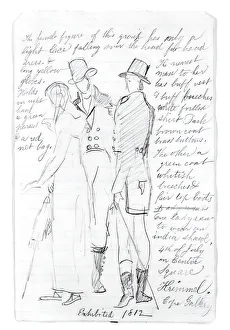 The female figure of this group has only a
light lace falling over the head for head
dress &
long yellow
gloves.
a green
& a red
net bag.
The nearest
man to her
has buff vest
& buff breeches
white frilled
shirt Dark
brown coat
brass buttons.
The other a
green coat
whitish
breeches &
fair top boots
One lady seen
to wear an
india shawl
4th of July
in Center
Square
Krimmel.
Exhibited 1812